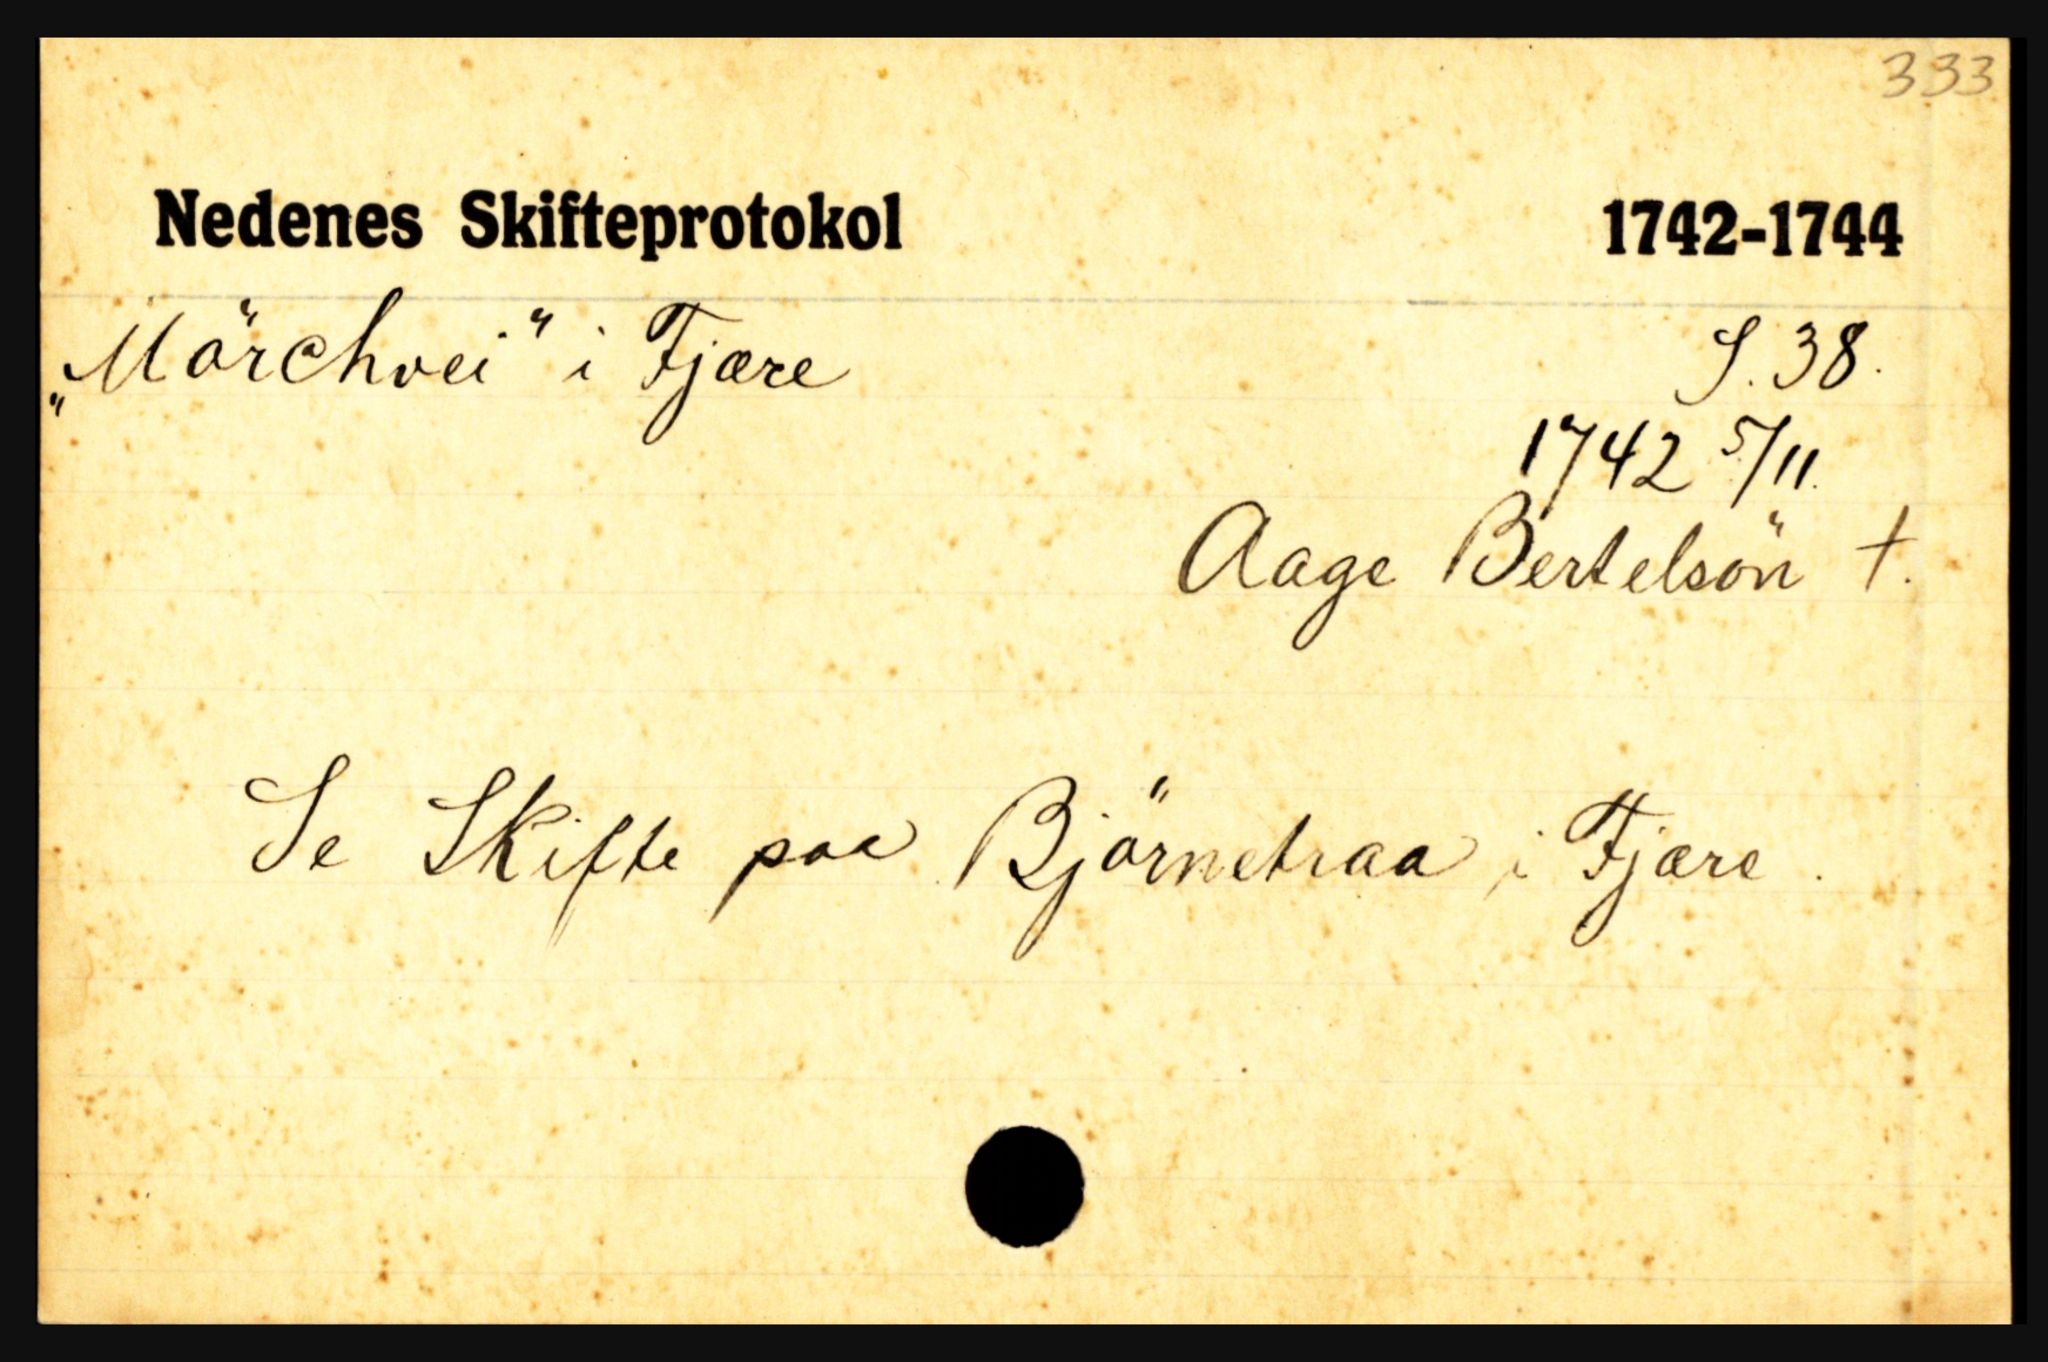 333
Nedenes Skifteprotokol 1742-1744
„Mörchvei" i Fjære S. 38.
1742 5/11.
Aage Bertelsön †.
Se Skifte paa Björnetraa i Fjære.